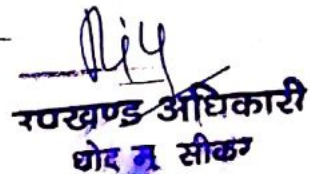 उपखण्ड अधिकारी
धोद मु सीकर